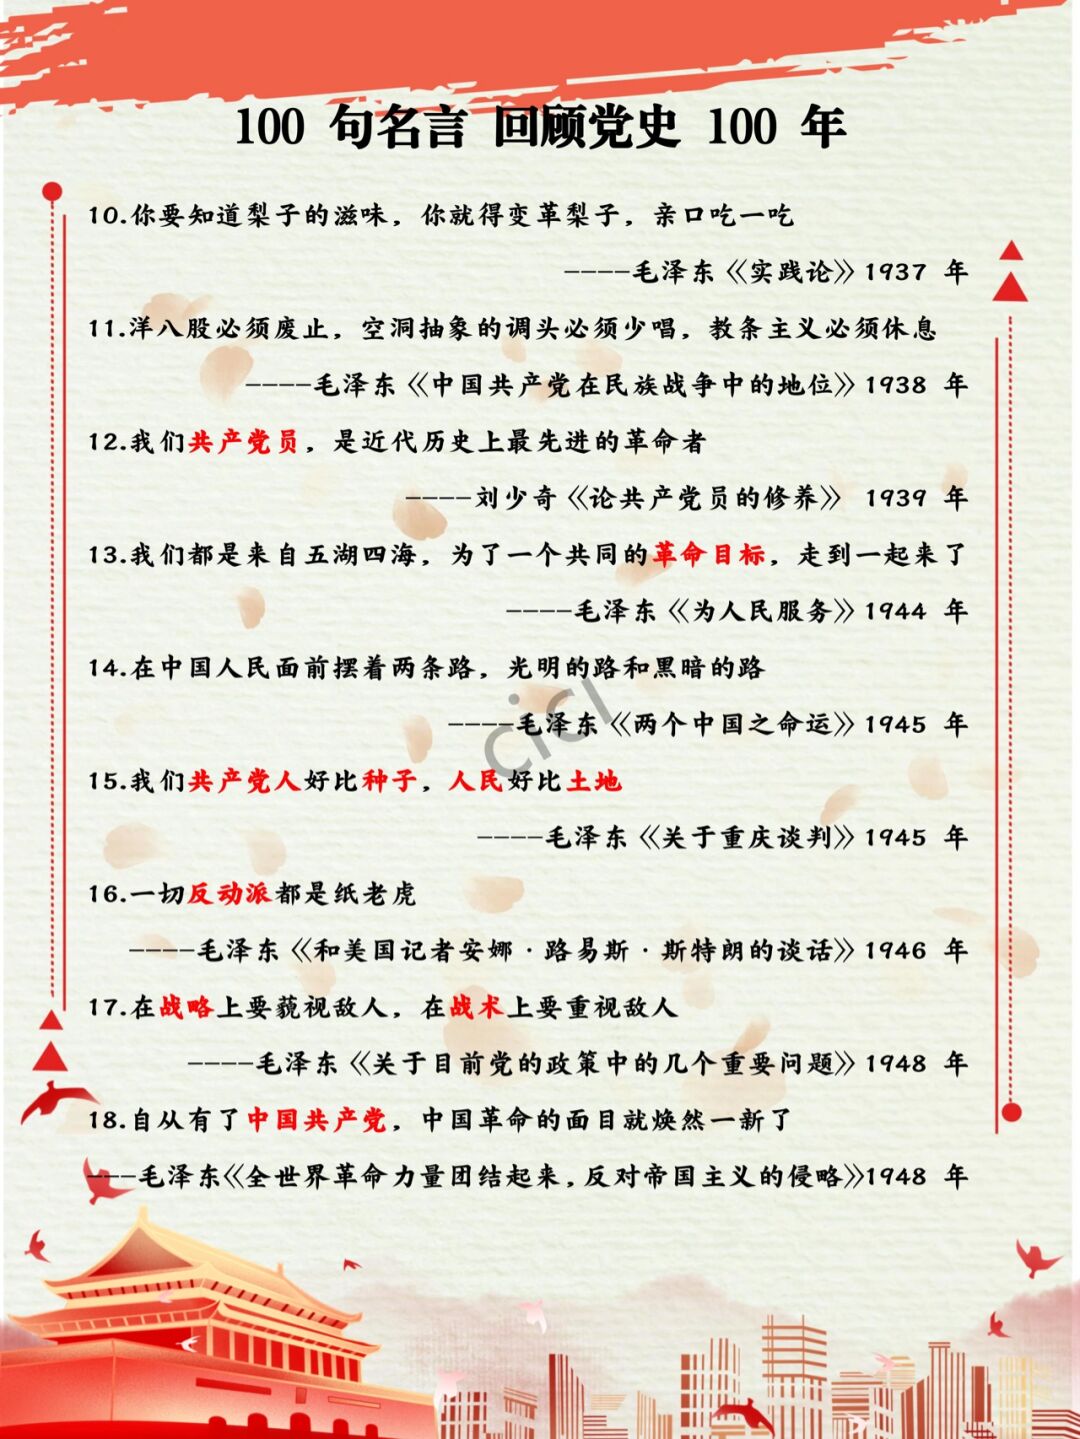 100 句名言 回顾党史 100 年
10.你要知道梨子的滋味，你就得变革梨子，亲口吃一吃
----毛泽东《实践论》1937 年
11.洋八股必须废止，空洞抽象的调头必须少唱，教条主义必须休息
----毛泽东《中国共产党在民族战争中的地位》1938 年
12.我们共产党员，是近代历史上最先进的革命者
----刘少奇《论共产党员的修养》 1939 年
13.我们都是来自五湖四海，为了一个共同的革命目标，走到一起来了
----毛泽东《为人民服务》1944 年
14.在中国人民面前摆着两条路，光明的路和黑暗的路
----毛泽东《两个中国之命运》1945 年
cici
15.我们共产党人好比种子，人民好比土地
----毛泽东《关于重庆谈判》1945 年
16.一切反动派都是纸老虎
----毛泽东《和美国记者安娜·路易斯·斯特朗的谈话》1946 年
17.在战略上要藐视敌人，在战术上要重视敌人
----毛泽东《关于目前党的政策中的几个重要问题》1948 年
18.自从有了中国共产党，中国革命的面目就焕然一新了
---毛泽东《全世界革命力量团结起来，反对帝国主义的侵略》1948 年